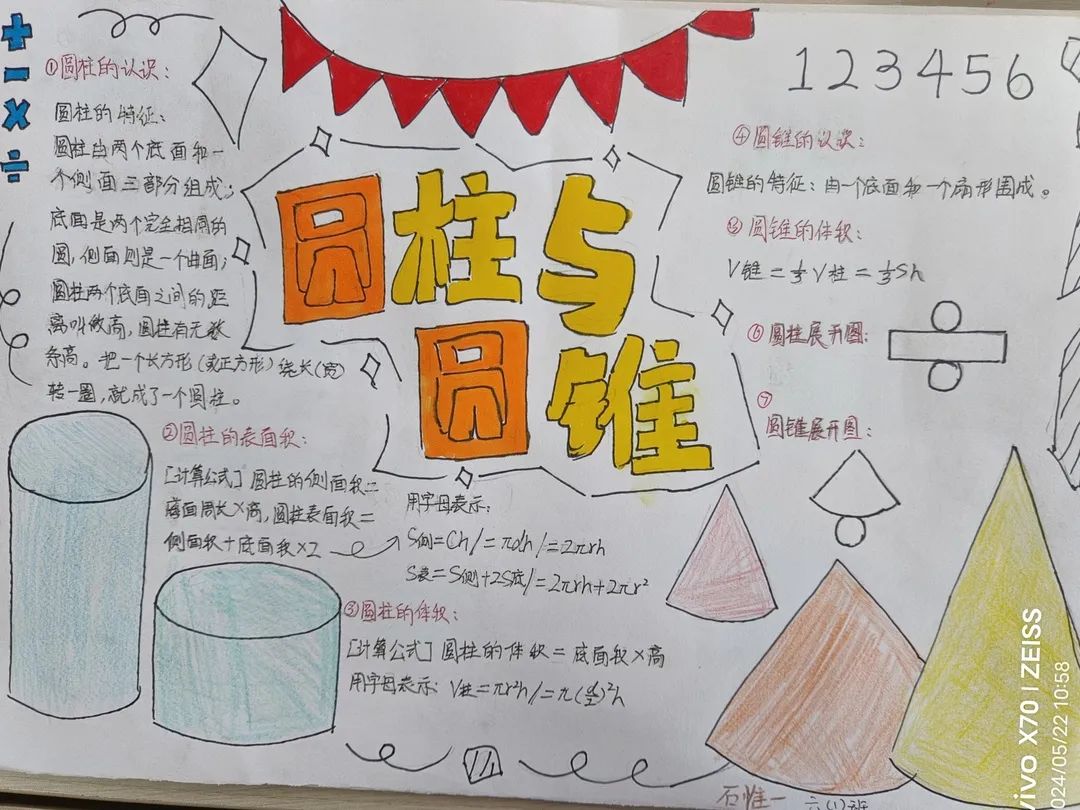 +
-
×
÷
①圆柱的认识:
圆柱的特征:
圆柱由两个底面和一
个侧面三部分组成;
底面是两个完全相同的
圆,侧面则是一个曲面;
圆柱两个底面之间的距
离叫做高,圆柱有无数
条高。把一个长方形(或正方形)绕长(宽)
转一圈,就成了一个圆柱。
圆柱与
圆锥
②圆柱的表面积:
[计算公式] 圆柱的侧面积=
底面周长×高,圆柱表面积=
侧面积+底面积×2
用字母表示:
S侧=Ch/=πdh/=2πrh
S表=S侧+2S底/=2πrh+2πr²
③圆柱的体积:
[计算公式] 圆柱的体积=底面积×高
用字母表示: V柱=πr²h/=π(d/2)²h
123456
④圆锥的认识:
圆锥的特征:由一个底面和一个扇形围成。
圆锥的体积:
V锥=⅓V柱=⅓Sh
⑥圆柱展开图:
⑦
圆锥展开图:
石惟一 六(1)班
vivo X70 | ZEISS
2024/05/22 10:58